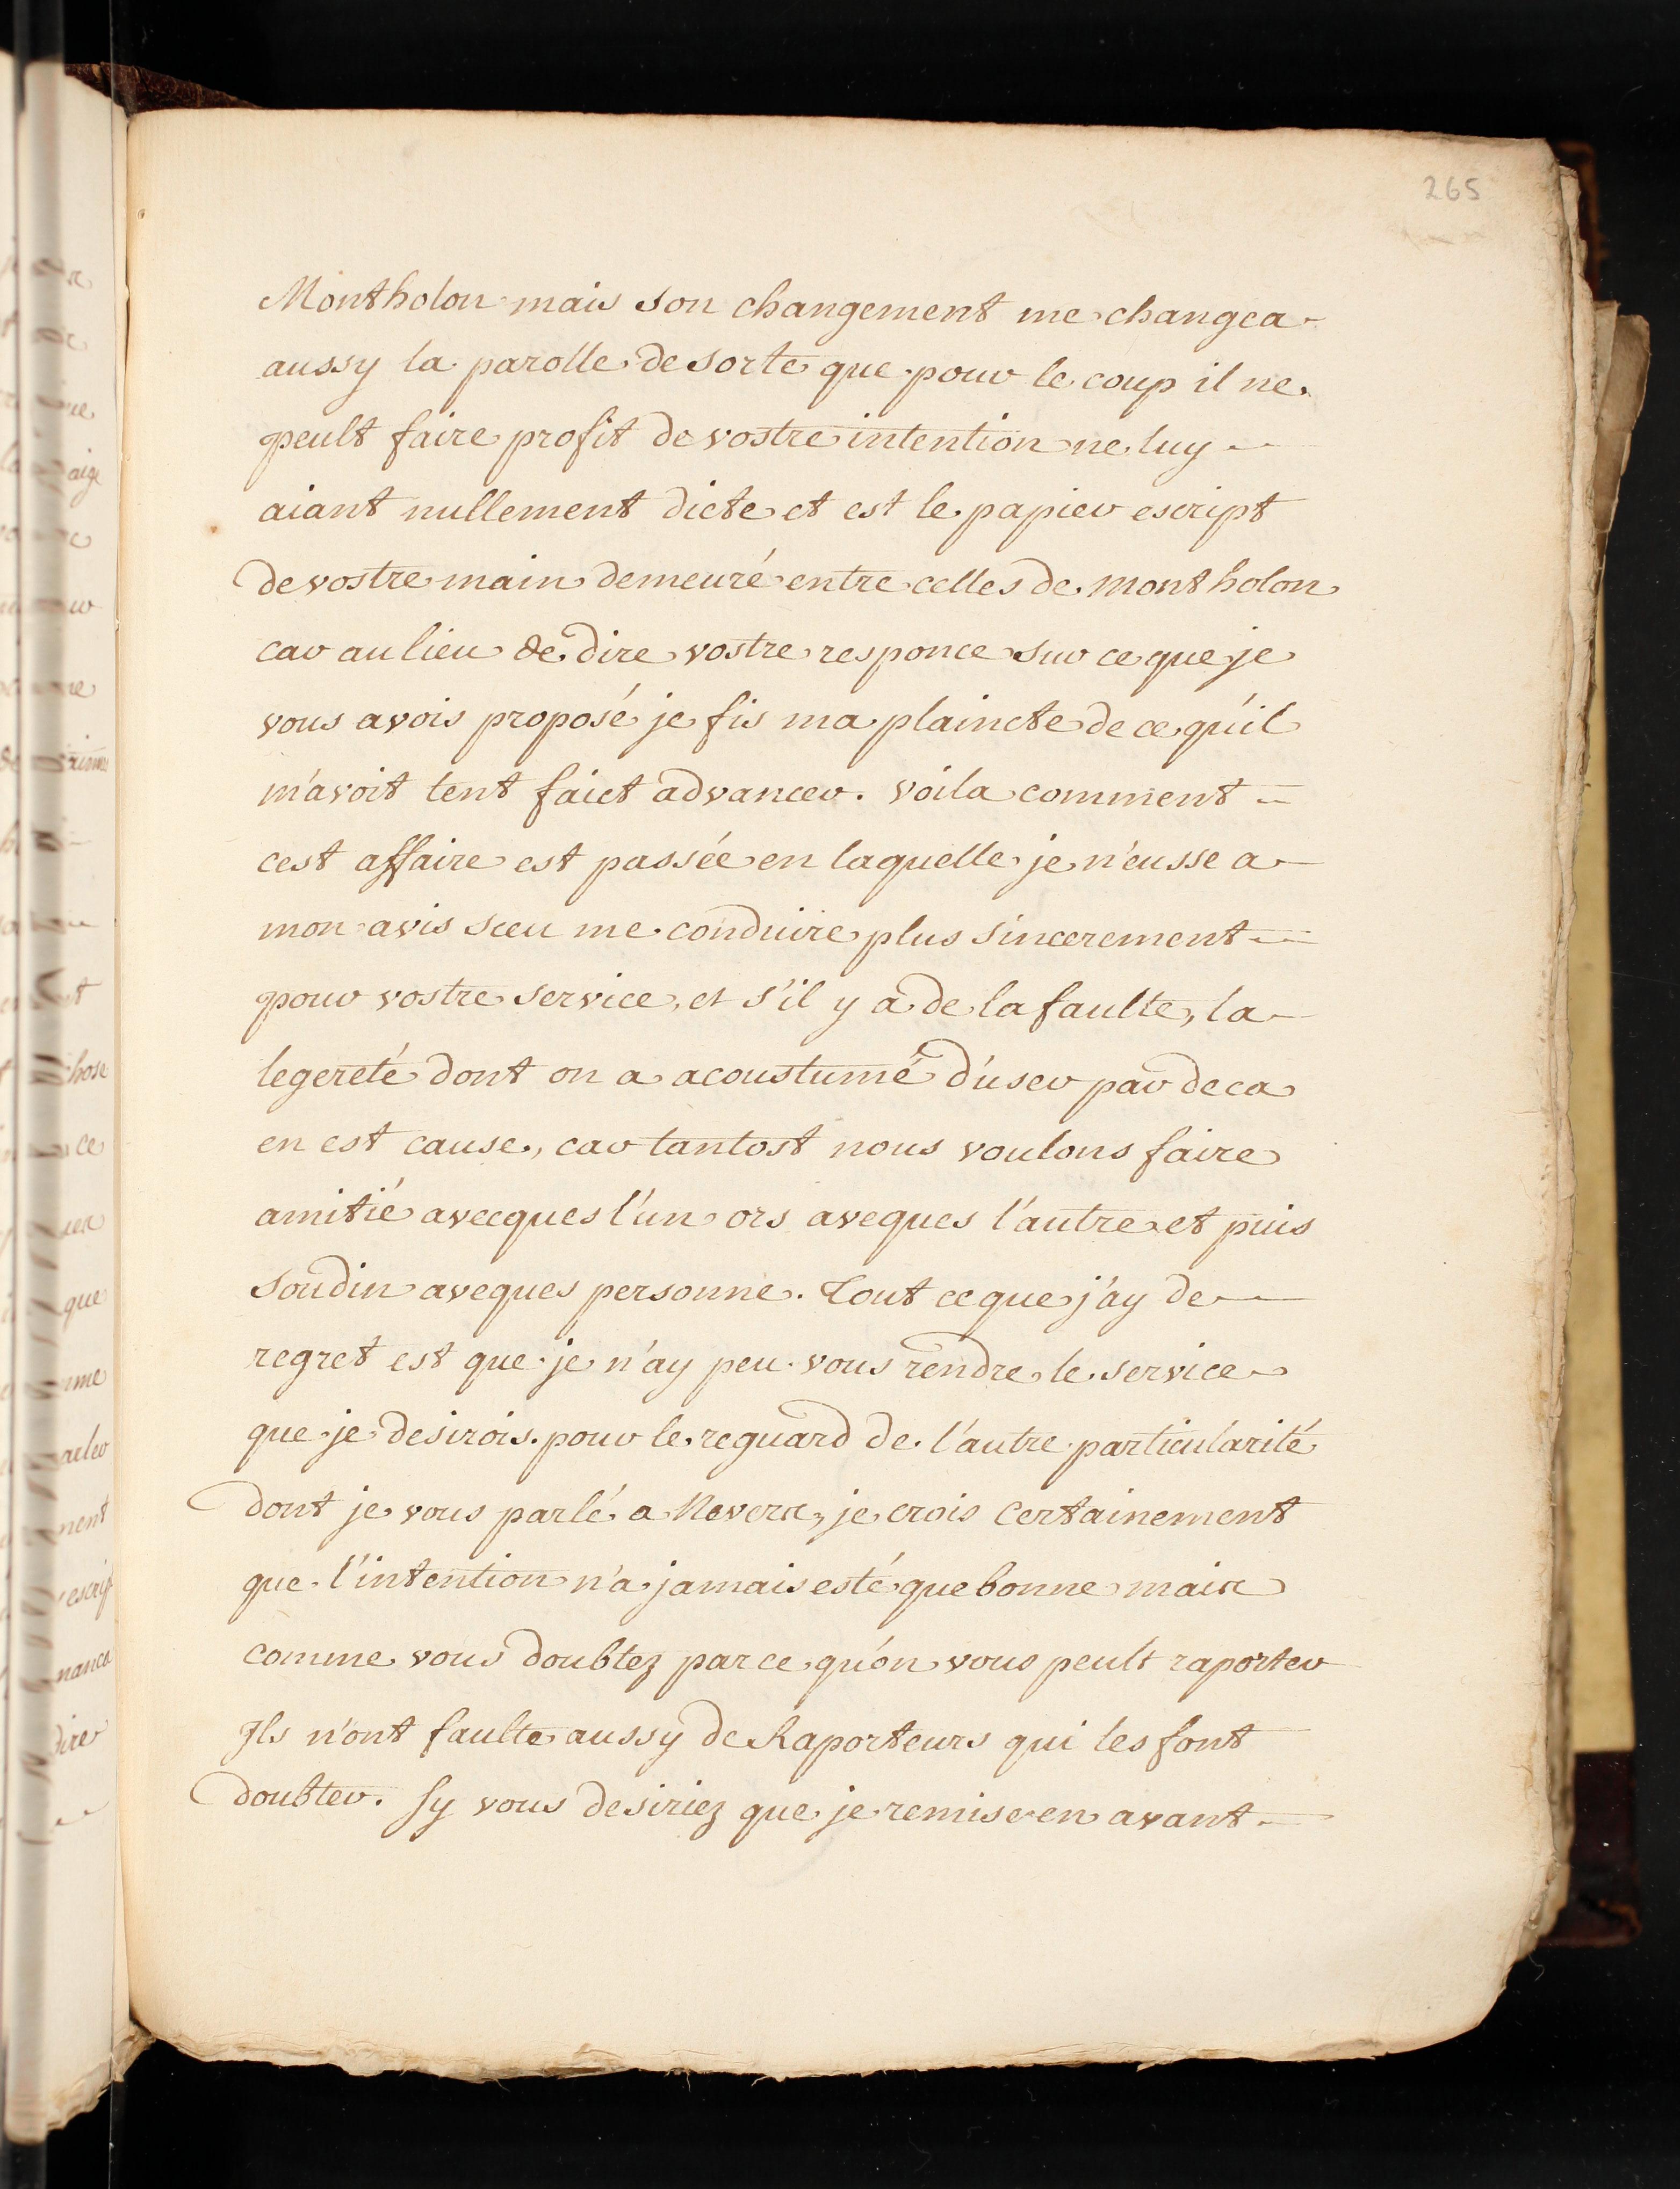 265
Montholon mais son changement me changea
aussy la parolle de sorte que pour le coup il ne
peult faire profit de vostre intention ne luy
aiant nullement dicte et est le papier escript
de vostre main demeuré entre celles de montholon
car au lieu de dire vostre responce sur ce que je
vous avois proposé je fis ma plaincte de ce qu'il
m'avoit tent faict advancer. voila comment
cest affaire est passée en laquelle je n'eusse a
mon avis sceu me conduire plus sincerement
pour vostre service, et s'il y a de la faulte, la
legereté dont on a acoustumé d'user par deca
en est cause, car tantost nous voulons faire
amitié avecques l'un ors aveques l'autre et puis
soudin aveques personne. Tout ce que j'ay de
regret est que je n'ay peu vous rendre le service
que je desirois. pour le reguard de l'autre particularité
dont je vous parlé a Nevers, je crois certainement
que l'intention n'a jamais esté que bonne mais
comme vous doubtez par ce qu'on vous peult raporter
Ils n'ont faulte aussy de Raporteurs qui les font
doubter. Sy vous desiriez que je remise en avant